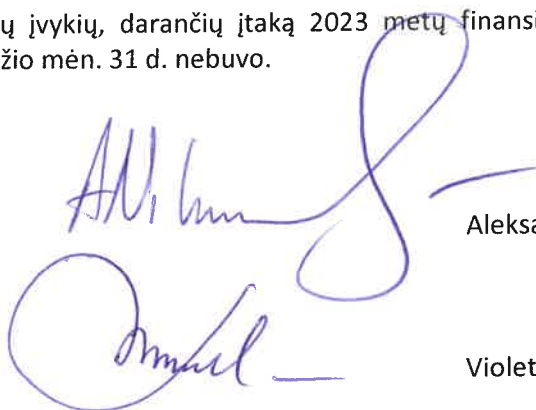 ų įvykių, darančių įtaką 2023 metų finansi
žio mėn. 31 d. nebuvo.
Aleksa
Violet